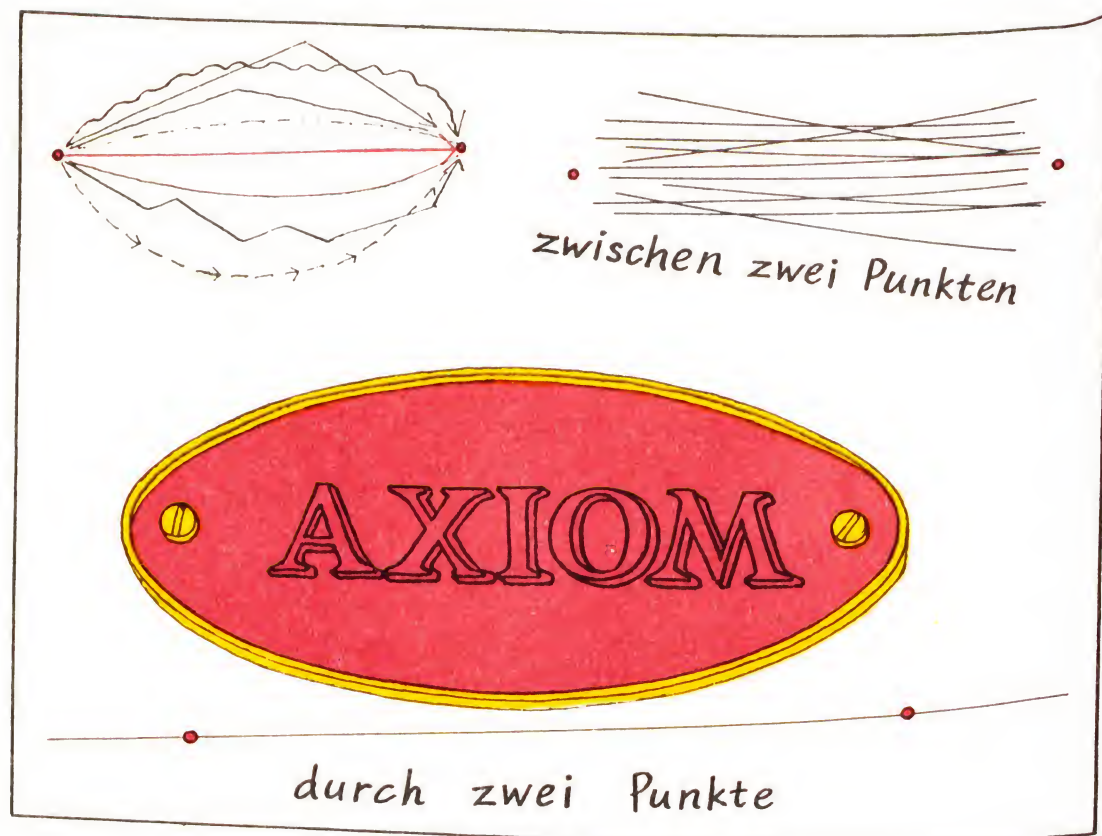 zwischen zwei Punkten
AXIOM
durch zwei Punkte